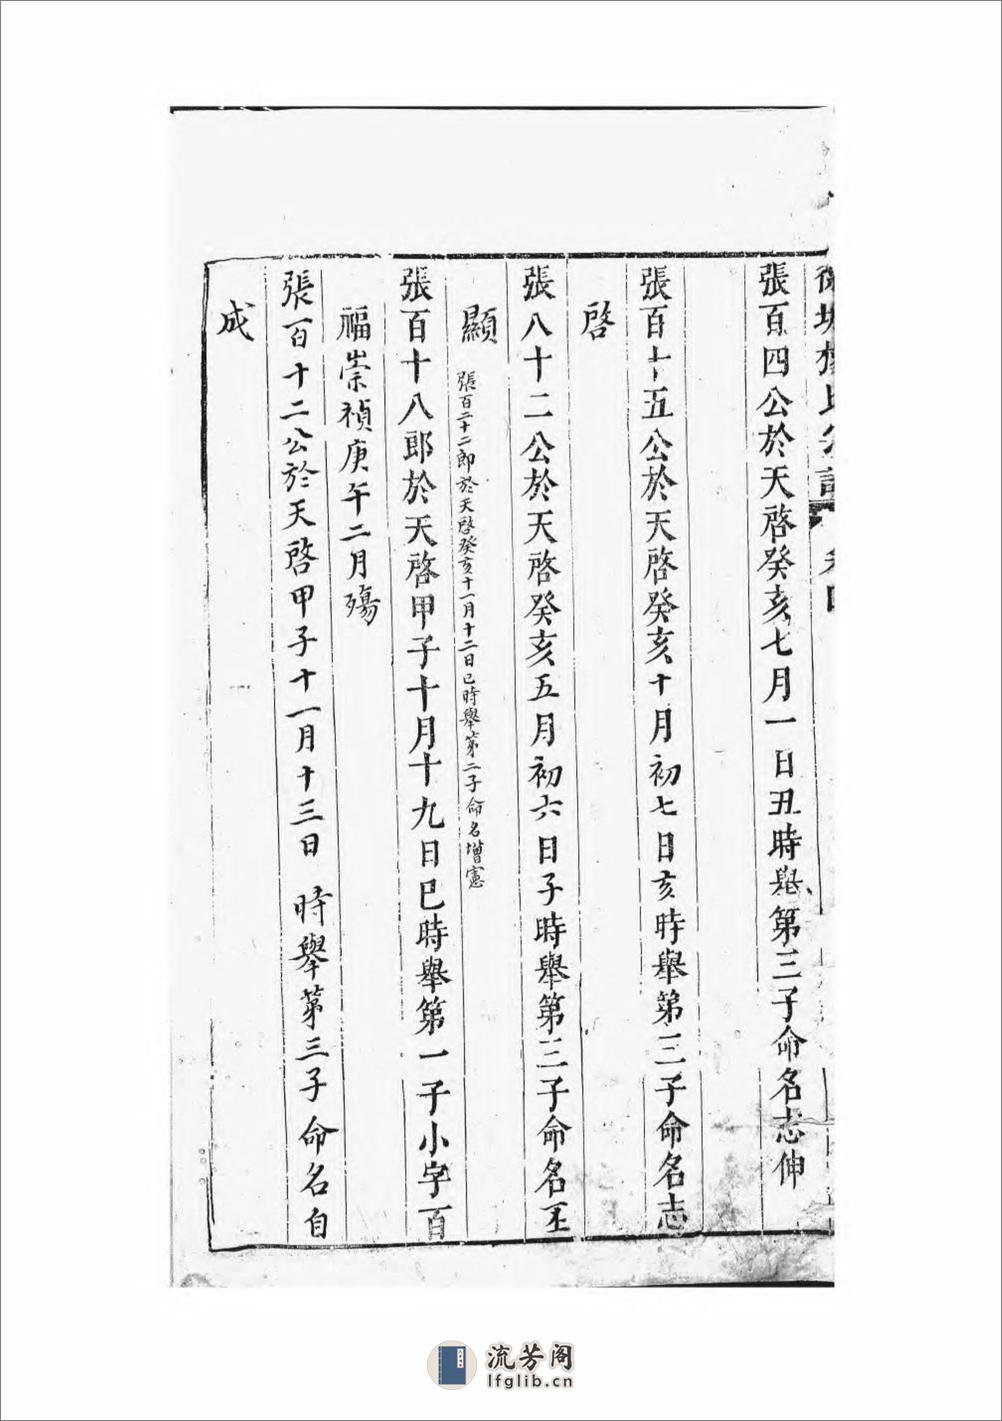 張百四公於天啓癸亥七月一日丑時舉第三子命名志伸
張百十五公於天啓癸亥十月初七日亥時舉第三子命名志
啓
張八十二公於天啓癸亥五月初六日子時舉第三子命名丕
顯
張百二十二郎於天啓癸亥十一月十二日巳時舉第二子命名增憲
張百十八郎於天啓甲子十月十九日巳時舉第一子小字百
福崇禎庚午二月殤
張百十二公於天啓甲子十一月十三日 時舉第三子命名自
成
流芳阁
lfglib.cn